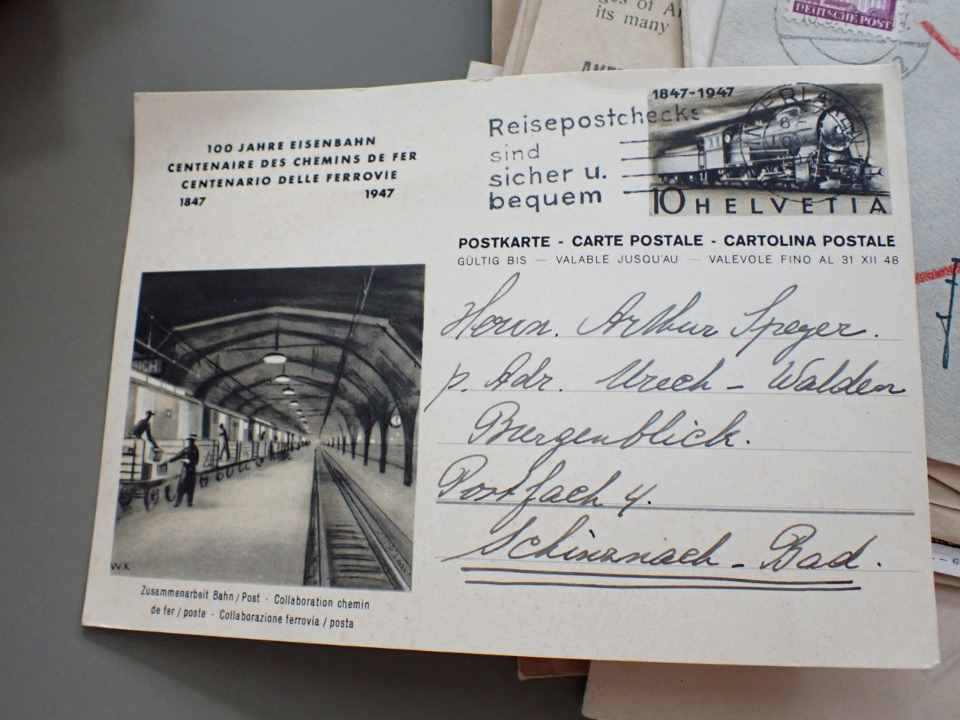 100 JAHRE EISENBAHN
CENTENAIRE DES CHEMINS DE FER
CENTENARIO DELLE FERROVIE
1847 1947
Reisepostchecks
sind
sicher u.
bequem
1847-1947
10 HELVETIA
POSTKARTE - CARTE POSTALE - CARTOLINA POSTALE
GÜLTIG BIS — VALABLE JUSQU'AU — VALEVOLE FINO AL 31 XII 48
Herrn. Arthur Speyer.
p. Adr. Urech - Walden
Burgenblick.
Postfach 4.
Schinznach - Bad.
W.K
Zusammenarbeit Bahn / Post - Collaboration chemin
de fer / poste - Collaborazione ferrovia / posta
its many
DEUTSCHE POST